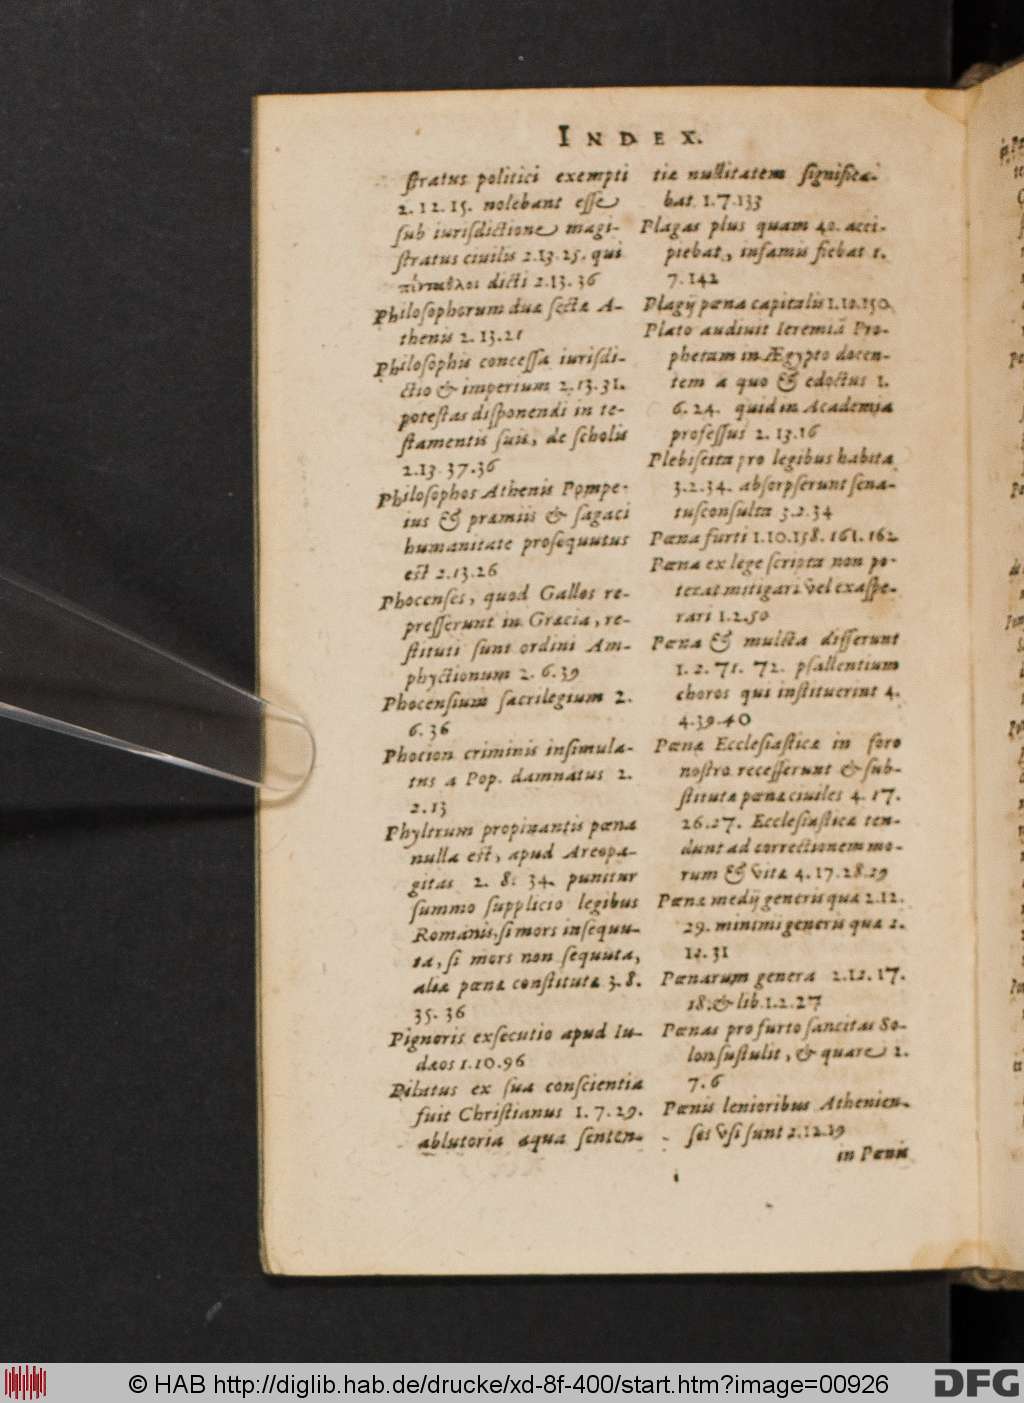 INDEX.
ſtratus politici exempti
2. 12. 15. nolebant eſſe
ſub iurisdictione magi-
ſtratus ciuilis 2.13.25. qui
πένταθλοι dicti 2.13. 36
Philoſophorum duæ ſectæ A-
thenis 2. 13.21
Philoſophis conceſſa iuriſdi-
ctio & imperium 2.13.31.
poteſtas diſponendi in te-
ſtamentis ſuis, de ſcholis
2.13 37.36
Philoſophos Athenis Pompe-
ius & præmiis & ſagaci
humanitate proſequutus
eſt 2.13.26
Phocenſes, quod Gallos re-
preſſerunt in Græcia, re-
ſtituti ſunt ordini Am-
phyctionum 2. 6.39
Phocenſium ſacrilegium 2.
6. 36
Phocion criminis inſimula-
tus a Pop. damnatus 2.
2.13
Phyltrum propinantis pœna
nulla eſt, apud Areopa-
gitas 2. 8. 34. punitur
ſummo ſupplicio legibus
Romanis, ſi mors inſequu-
ta, ſi mors non ſequuta,
aliæ pœnæ conſtitutæ 3.8.
35. 36
Pignoris exſecutio apud Iu-
dæos 1.10.96
Pilatus ex ſua conſcientia
fuit Chriſtianus 1. 7. 29.
ablutoria aqua ſenten-
tiæ nullitatem ſignifica-
bat 1.7.133
Plagas plus quam 40. acci-
piebat, infamis fiebat 1.
7.142
Plagij pœna capitalis 1.10.150
Plato audiuit Ieremiã Pro-
phetam in Ægypto docen-
tem a quo & edoctus 1.
6. 24. quid in Academia
profeſſus 2. 13.16
Plebiſcita pro legibus habita
3.2.34. abſorpſerunt ſena-
tuſconſulta 3.2.34
Pœna furti 1.10.158. 161. 162
Pœna ex lege ſcripta non po-
terat mitigari vel exaſpe-
rari 1.2.50
Pœna & multta differunt
1. 2. 71. 72. pſallentium
choros qui inſtituerint 4.
4.39.40
Pœnæ Eccleſiaſticæ in foro
noſtro receſſerunt & ſub-
ſtitutæ pœnæ ciuiles 4. 17.
26.27. Eccleſiaſticæ ten-
dunt ad correctionem mo-
rum & vitæ 4. 17.28.29
Pœnæ medij generis quæ 2.12.
29. minimi generis quæ 2.
12. 31
Pœnarum genera 2.12. 17.
18. & lib.1.2.27
Pœnas pro furto ſancitas So-
lon ſuſtulit, & quare 2.
7. 6
Pœnis lenioribus Athenien-
ſes vſi ſunt 2.12.19
in Pœnis
© HAB http://diglib.hab.de/drucke/xd-8f-400/start.htm?image=00926
DFG